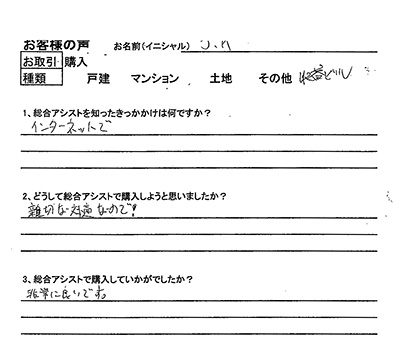 お客様の声 お名前(イニシャル)
お取引 購入
種類 戸建 マンション 土地 その他 収益ビル
1、総合アシストを知ったきっかけは何ですか?
インターネットで
2、どうして総合アシストで購入しようと思いましたか?
親切な対応なので!
3、総合アシストで購入していかがでしたか?
非常に良いです。